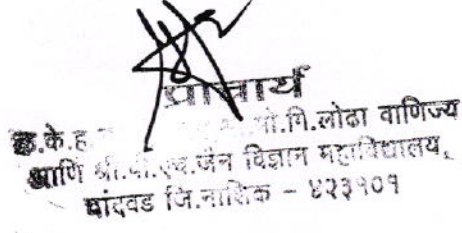 प्राचार्य
के.ह. गो.गि.लोढा वाणिज्य
आणि श्री.पी.एच.जैन विज्ञान महाविद्यालय,
चांदवड जि.नाशिक - ४२३१०१